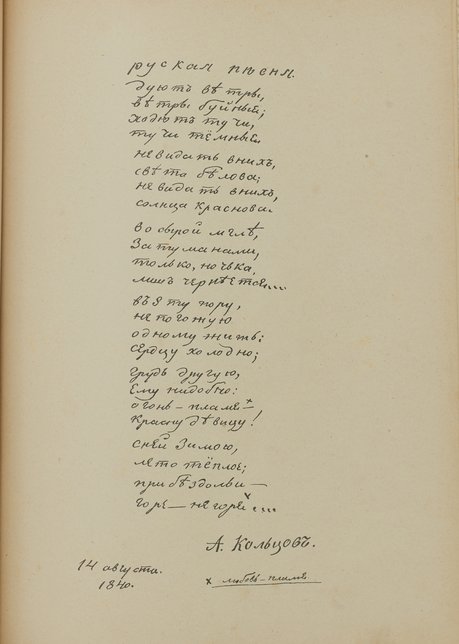 руская пѣсня.
дуютъ вѣтры,
вѣтры буйныи;
ходютъ тучи,
тучи тёмныи.
невидать внихъ,
свѣта бѣлова;
невидать внихъ,
солнца краснова.
Во сырой мглѣ,
За туманами,
только, ночька,
лишъ чернѣется....
въэту пору,
непогожую
одному жить:
сердцу холодно;
грудь другую,
Ему нидобно:
огонь-пламя х—
Красну дѣвицу!
сней Зимою,
лето тёплое;
прибѣздольи —
горе — негоре х....
А. Кольцовъ.
14 августа.
1840.
х любовь-пламя.